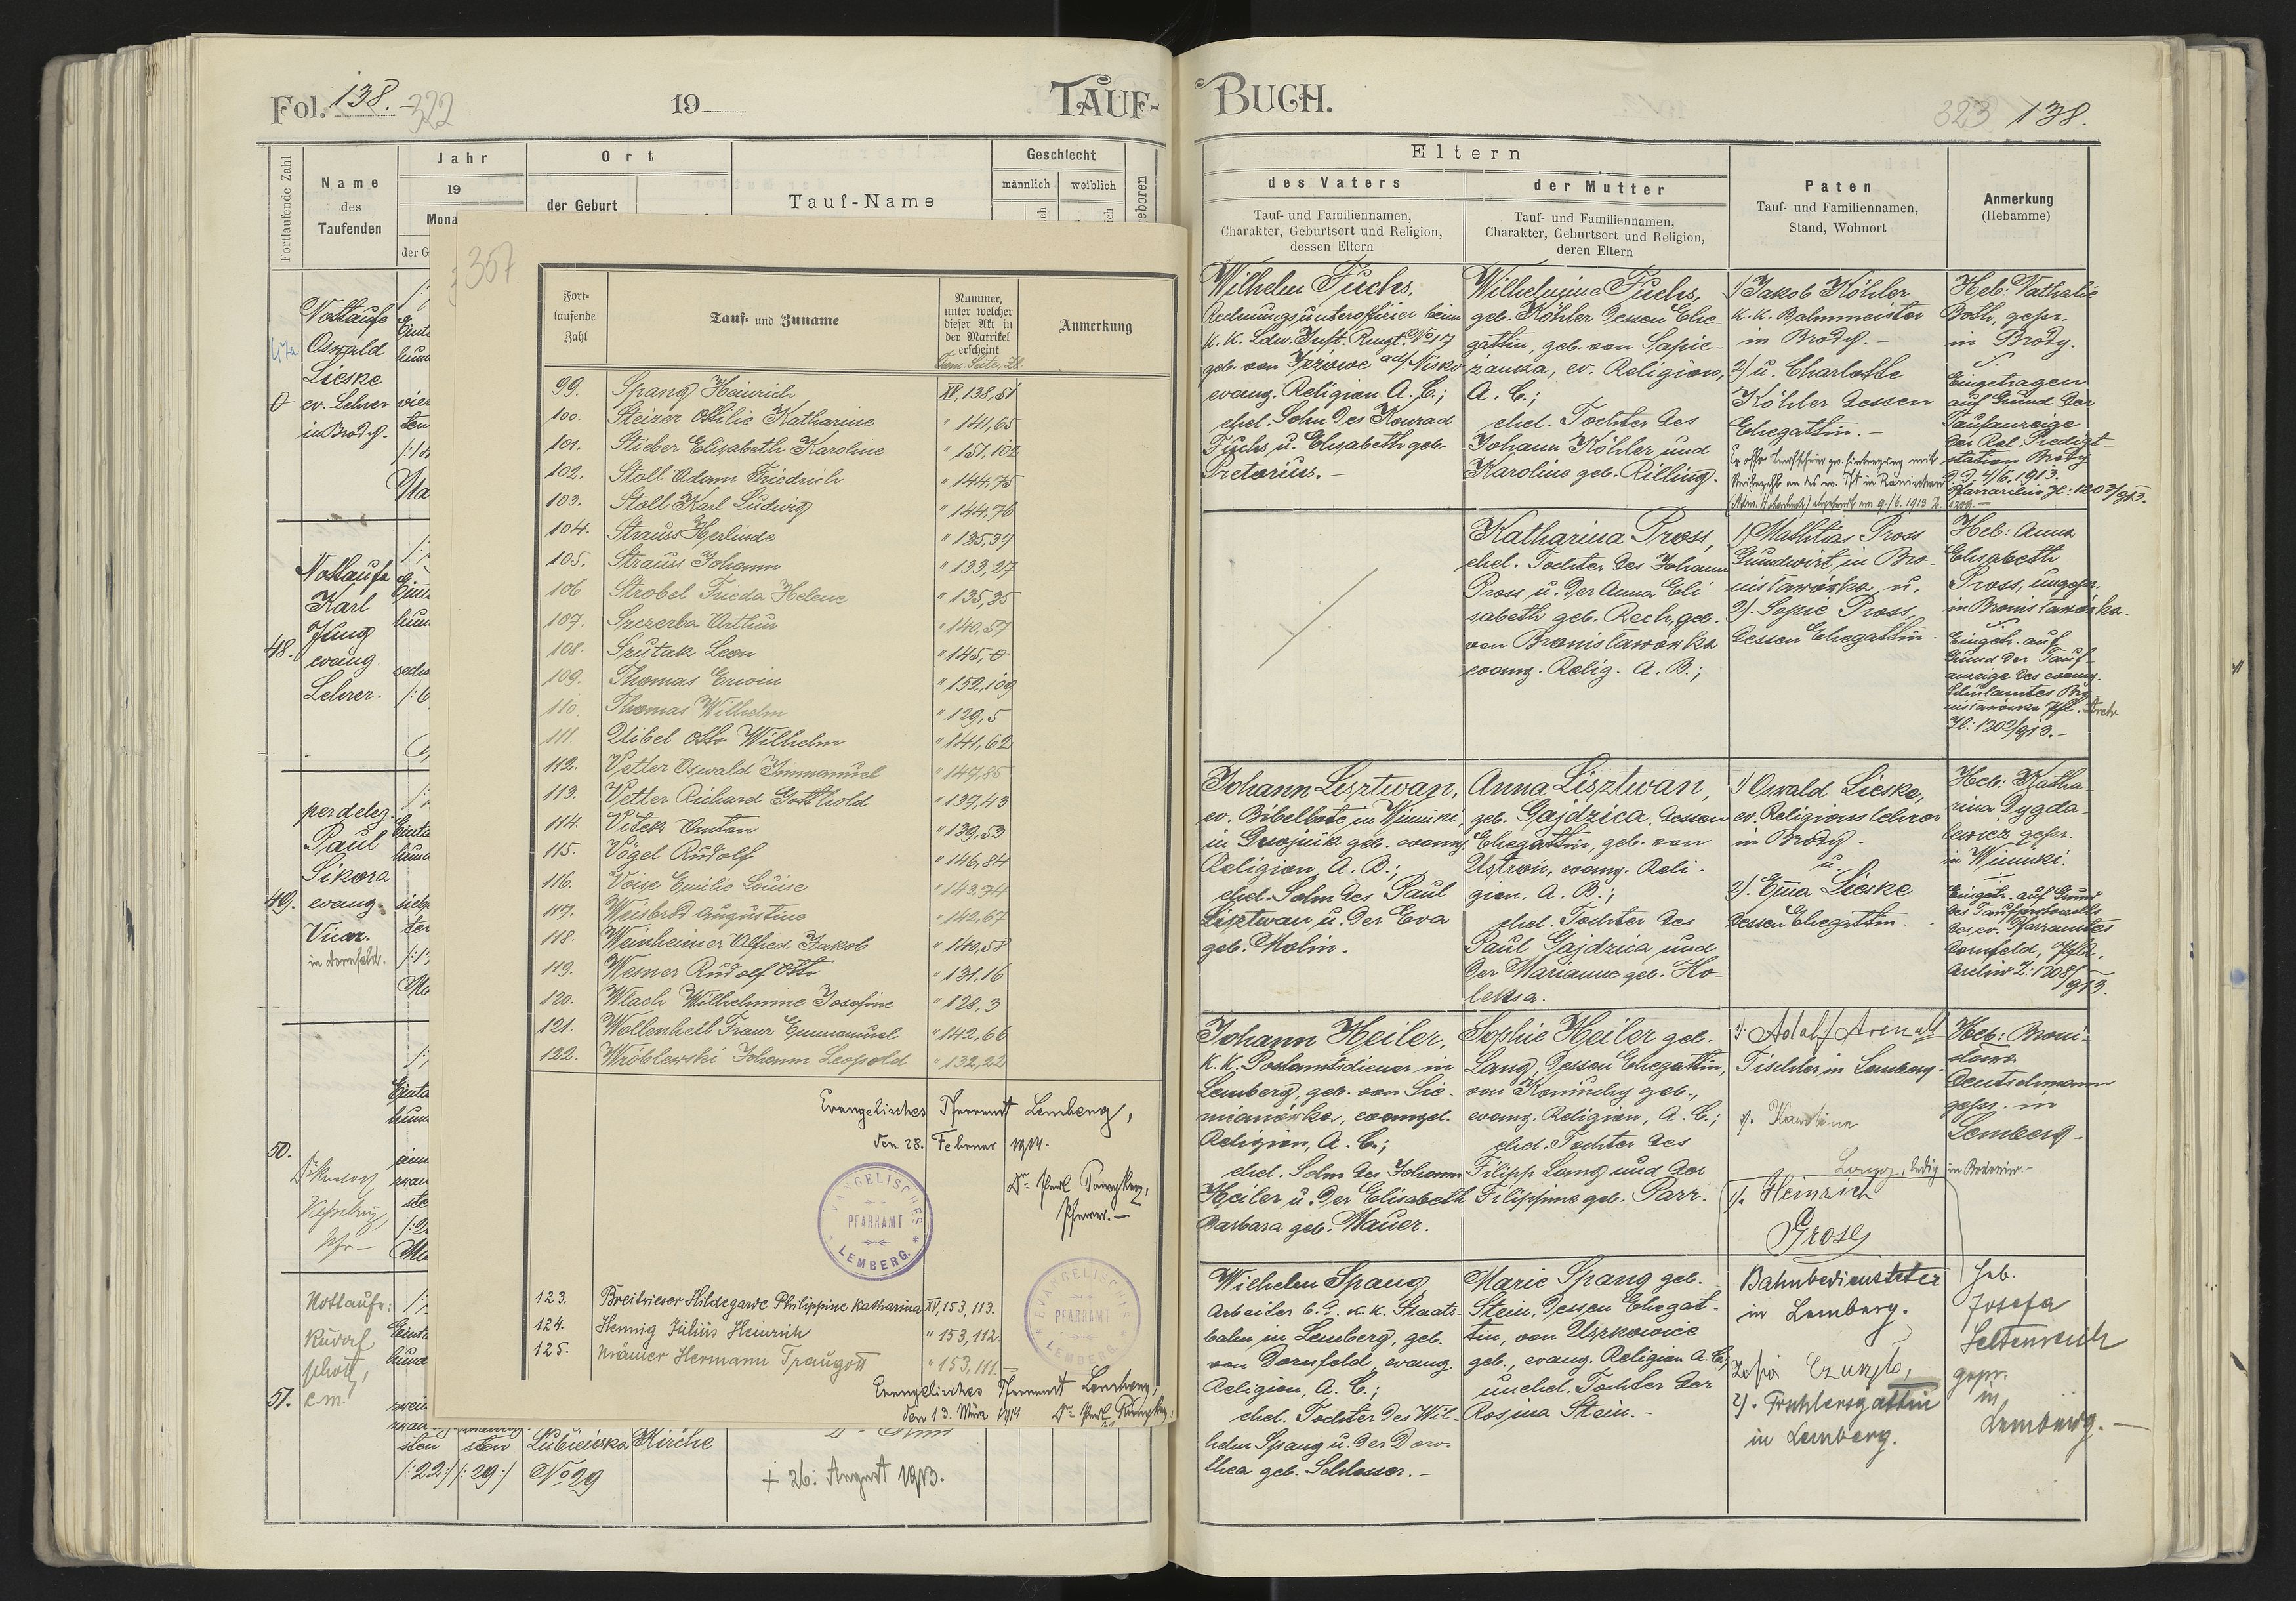 Fol. 138. 322
19
TAUF-
Fortlaufende Zahl
Name
des
Taufenden
Jahr
19
Mona
der G
Ort
der Geburt
Tauf-Name
Geschlecht
männlich
weiblich
Nottaufe
Oswald
Lieske
ev. Lehrer
in Brody.
48.
Nottaufe
Karl
Jung
evang.
Lehrer.
49.
per deleg.
Paul
Sikora
evang.
Vicar.
in Dornfeld.
50.
51.
Nottaufe:
Rudolf
c.m.
sten
sten
Kirche
/:22:/
/:29:/
No 29
+ 26: August 1913.
357
Fort-
laufende
Zahl
Tauf- und Zuname
Nummer,
unter welcher
dieser Akt in
der Matrikel
erscheint
Tom. Seite, Zl.
Anmerkung
99. Spang Heinrich XV, 138, 51
100. Steizer Ottilie Katharine " 141, 65
101. Stieber Elisabeth Karoline " 151, 102
102. Stoll Adam Friedrich " 144, 75
103. Stoll Karl Ludwig " 144, 76
104. Strauss Herlinde " 135, 37
105. Strauss Johann " 133, 27
106 Strobel Frieda Helene " 135, 35
107. Szczerba Arthur " 140, 57
108. Szutak Leon " 145, 0
109. Thomas Erwin " 152, 109
110. Thomas Wilhelm " 129, 5
111. Uibel Otto Wilhelm " 141, 62
112. Vetter Oswald Immanuel " 147, 85
113. Vetter Richard Gotthold " 137, 43
114. Vitek Anton " 139, 53
115. Vogel Rudolf " 146, 84
116. Voise Emilie Louise " 143, 74
117. Weisbrod Augustine " 142, 67
118. Weinheimer Alfred Jakob " 140, 58
119. Wesner Rudolf Otto " 131, 16
120. Wlach Wilhelmine Josefine " 128, 3
121. Wollenheit Franz Emmanuel " 142, 66
122. Wróblewski Johann Leopold " 132, 22
Evangelisches Pfarramt Lemberg,
den 28. Februar 1914.
Pfarrer.—
EVANGELISCHES
PFARRAMT
LEMBERG.
123. Breitwieser Hildegarde Philippine Katharina XV, 153, 113.
124. Hennig Julius Heinrich " 153, 112.
125. Krämer Hermann Traugott " 153, 111.
EVANGELISCHES
PFARRAMT
LEMBERG
Evangelisches Pfarramt Lemberg,
den 13. März 1914
BUCH.
323 138.
Eltern
des Vaters
Tauf- und Familiennamen,
Charakter, Geburtsort und Religion,
dessen Eltern
der Mutter
Tauf- und Familiennamen,
Charakter, Geburtsort und Religion,
deren Eltern
Paten
Tauf- und Familiennamen,
Stand, Wohnort
Anmerkung
(Hebamme)
Wilhelm Fuchs,
Rechnungsunteroffizier beim
k. k. Ldw. Inft. Rngt. No 17
geb. von Jeżowe ad/ Nisko
evang. Religion A. C.;
ehel. Sohn des Konrad
Fuchs u. Elisabeth geb.
Pretorius.—
Wilhelmine Fuchs,
geb. Köhler dessen Ehe-
gattin, geb. von Sapie-
żanka, ev. Religion,
A. C.;
ehel. Tochter des
Johann Köhler und
Karoline geb. Rilling.
1) Jakob Köhler
k. k. Bahnmeister
in Brody.—
2) u. Charlotte
Köhler dessen
Ehegattin.—
Heb: Nathalie
Both, gepr.
in Brody.
Eingetragen
auf Grund der
Taufanzeige
der Rel. Predigt-
station Brody
d.d. 4/6. 1913.
Pfarrarchiv Zl: 1203/913.
Katharina Pross,
ehel. Tochter des Johann
Pross u. der Anna Eli-
sabeth geb. Rech, geb.
von Bronisławówka
evang. Relig. A. B.;
1) Mathias Pross
Grundwirt in Bro-
nisławówka u.
2). Sofie Pross
dessen Ehegattin.
Heb: Anna
Elisabeth
Pross, ungepr.
in Bronisławówka.
Eingetr. auf
Grund der Tauf-
anzeige des evang.
Schulamtes Bro-
nisławówka Pfl. Arch.
Zl: 1202/913.—
Johann Lisztwan,
ev. Bibelbote in Winniki,
in Gnojnik geb. evang.
Religion, A. B.;
ehel. Sohn des Paul
Lisztwan u. der Eva
geb. Molin.
Anna Lisztwan,
geb. Gajdzica, dessen
Ehegattin, geb. von
Ustroń, evang. Reli-
gion, A. B.;
ehel. Tochter des
Paul Gajdzica und
der Marianne geb. Ho-
leksa.
1) Oswald Lieske,
ev. Religionslehrer
in Brody.
u.
2). Ema Lieske
dessen Ehegattin.
Heb: Katha-
rina Dygda-
lewicz gepr.
in Winniki.
Eingetr. auf Grund
des Taufprotokolls
des ev. Pfarramtes
Dornfeld, Pfl.
Archiv Z: 1208/913.
Johann Heiler,
k. k. Postamtsdiener in
Lemberg, geb. von Sie-
mianówka, evangel.
Religion, A. C.;
ehel. Sohn des Johann
Heiler u. der Elisabeth
Barbara geb. Mauer.
Sophie Heiler geb.
Lang, dessen Ehegattin,
von Koniuchy geb.,
evang. Religion, A. C.;
ehel. Tochter des
Filipp Lang und der
Filippine geb. Parr.
1). Adolf Arendt
Tischler in Lemberg.
2). Karoline
Lang, ledig in
3). Heinrich
Gross
Heb: Broni-
slawa
Deutschmann
gepr. in
Lemberg.
Wilhelm Spang
Arbeiter b. d. k. k. Staats-
bahn in Lemberg, geb.
von Dornfeld, evang.
Religion, A. C.;
ehel. Tochter des Wil-
helm Spang u. der Doro-
thea geb. Schlosser.—
Marie Spang geb.
Stein, dessen Ehegat-
tin, von Uszkowice
geb., evang. Religion A. C.;
unehel. Tochter der
Rosina Stein.—
Bahnbediensteter
in Lemberg.
2). Tischlersgattin
in Lemberg.
Heb.
Josefa
Seltenreich
gepr.
in
Lemberg.—